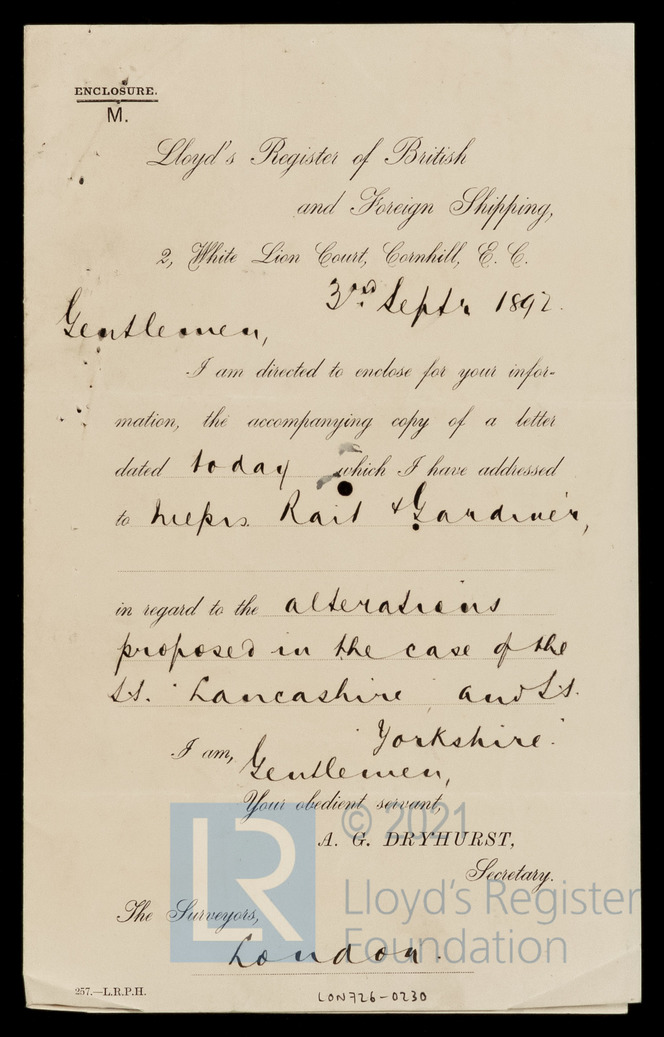 ENCLOSURE.
M.
Lloyd's Register of British
and Foreign Shipping,
2, White Lion Court, Cornhill, E. C.
3rd Septr 1892.
Gentlemen,
I am directed to enclose for your infor-
mation, the accompanying copy of a letter
dated today which I have addressed
to Messrs. Rait & Gardiner,
in regard to the alterations
proposed in the case of the
S.S. "Lancashire" and S.S.
"Yorkshire".
I am,
Gentlemen,
Your obedient servant,
© 2021
A. G. DRYHURST,
Secretary.
LR
Lloyd's Register
Foundation
The Surveyors,
London.
257.—L.R.P.H.
LON726-0230